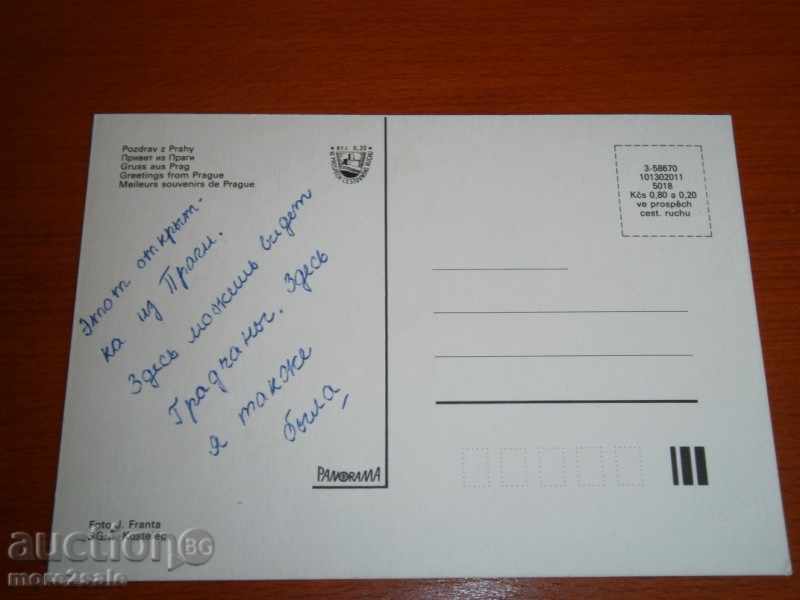 Pozdrav z Prahy
Привет из Праги
Gruss aus Prag
Greetings from Prague
Meilleurs souvenirs de Prague
Kčs 0,20
Этот открыт-
ка из Праги.
Здесь можешь видет
Градчаны. Здесь
я также
была
PANORAMA
Foto J. Franta
Kostelec
3-58670
101302011
5018
Kčs 0,80 a 0,20
ve prospěch
cest. ruchu
auction BG
more2sale